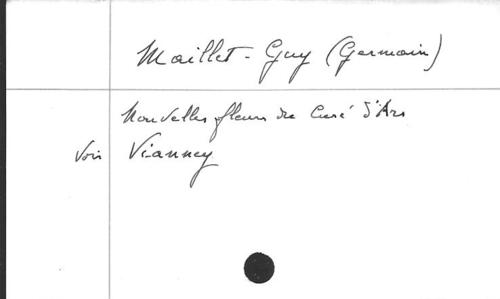 Maillet-Guy (Germain)
Nouvelles fleurs du Curé d'Ars
voir Vianney